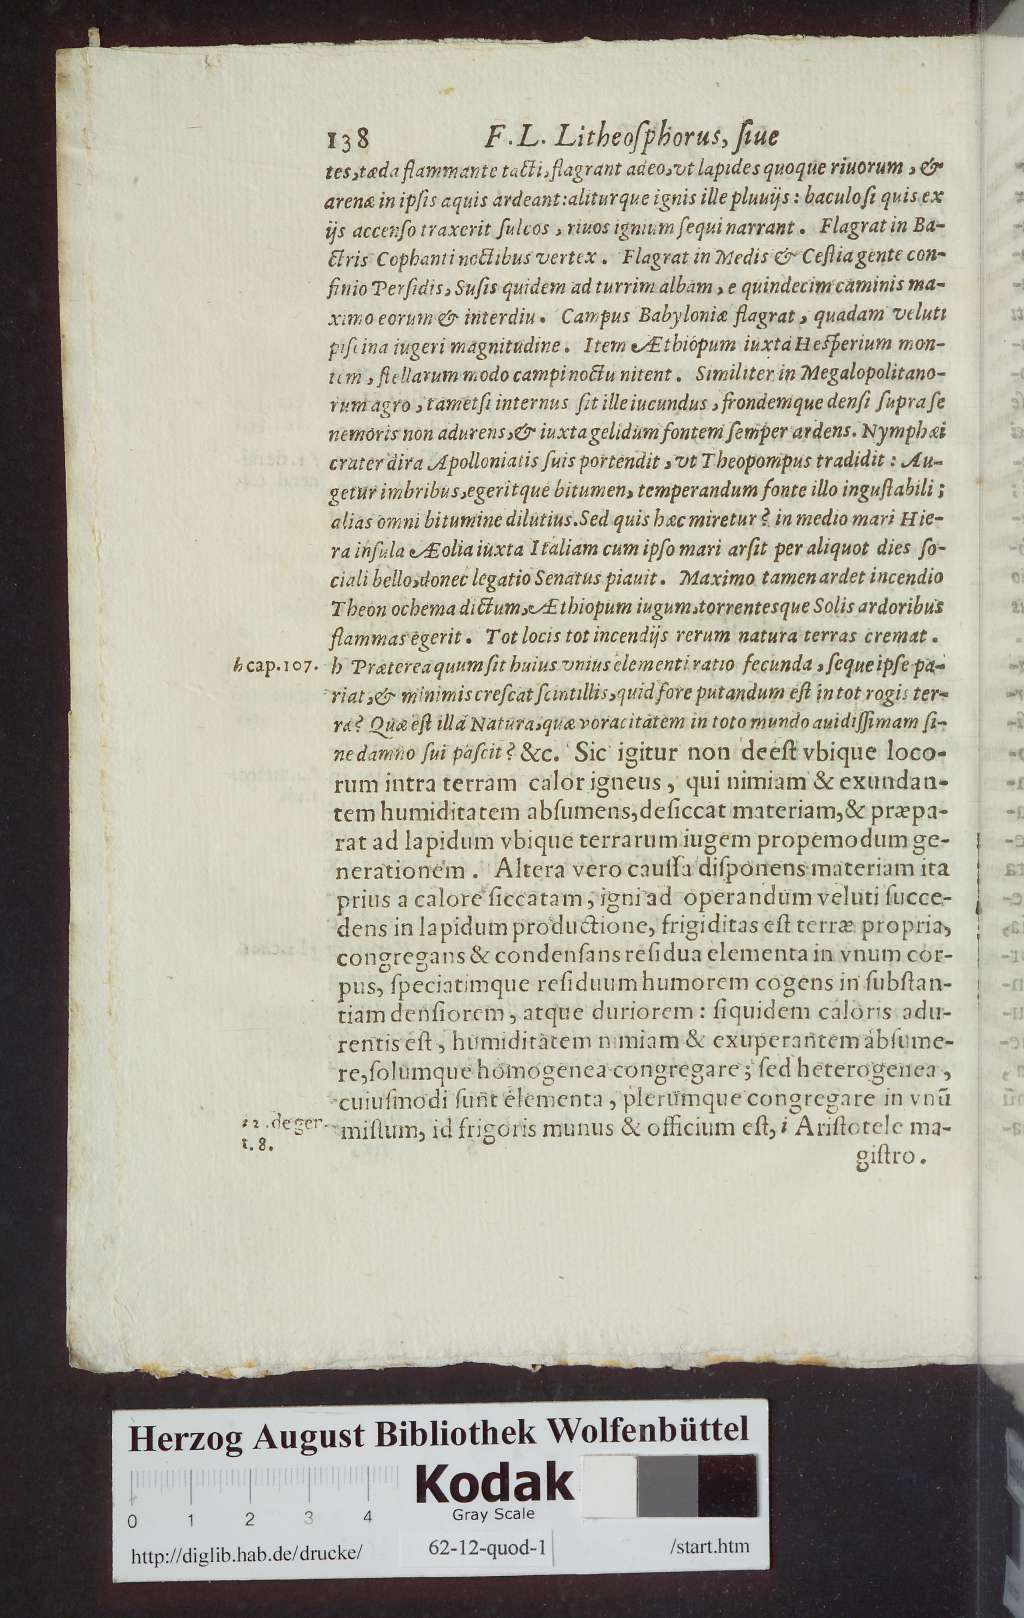 138 F. L. Litheoſphorus, ſiue
tes, tæda flammante tacti, flagrant adeo, vt lapides quoque riuorum, &
arenæ in ipſis aquis ardeant: aliturque ignis ille pluuijs: baculo ſi quis ex
ijs accenſo traxerit ſulcos, riuos ignium ſequi narrant. Flagrat in Ba-
ctris Cophanti noctibus vertex. Flagrat in Medis & Ceſtia gente con-
finio Perſidis, Suſis quidem ad turrim albam, e quindecim caminis ma-
ximo eorum & interdiu. Campus Babyloniæ flagrat, quadam veluti
piſcina iugeri magnitudine. Item Æthiopum iuxta Heſperium mon-
tem, ſtellarum modo campi noctu nitent. Similiter in Megalopolitano-
rum agro, tametſi internus ſit ille iucundus, frondemque denſi ſupra ſe
nemoris non adurens, & iuxta gelidum fontem ſemper ardens. Nymphæi
crater dira Apolloniatis ſuis portendit, vt Theopompus tradidit: Au-
getur imbribus, egeritque bitumen, temperandum fonte illo inguſtabili;
alias omni bitumine dilutius. Sed quis hæc miretur? in medio mari Hie-
ra inſula Æolia iuxta Italiam cum ipſo mari arſit per aliquot dies ſo-
ciali bello, donec legatio Senatus piauit. Maximo tamen ardet incendio
Theon ochema dictum, Æthiopum iugum, torrentesque Solis ardoribus
flammas egerit. Tot locis tot incendijs rerum natura terras cremat.
h cap. 107. h Præterea quum ſit huius vnius elementi ratio fecunda, ſeque ipſe pa-
riat, & minimis creſcat ſcintillis, quid fore putandum eſt in tot rogis ter-
ræ? Quæ eſt illa Natura, quæ voracitatem in toto mundo auidiſſimam ſi-
ne damno ſui paſcit? &c. Sic igitur non deeſt vbique loco-
rum intra terram calor igneus, qui nimiam & exundan-
tem humiditatem abſumens, deſiccat materiam, & præpa-
rat ad lapidum vbique terrarum iugem propemodum ge-
nerationem. Altera vero cauſſa diſponens materiam ita
prius a calore ſiccatam, igni ad operandum veluti ſucce-
dens in lapidum productione, frigiditas eſt terræ propria,
congregans & condenſans reſidua elementa in vnum cor-
pus, ſpeciatimque reſiduum humorem cogens in ſubſtan-
tiam denſiorem, atque duriorem: ſiquidem caloris adu-
rentis eſt, humiditatem nimiam & exuperantem abſume-
re, ſolumque homogenea congregare; ſed heterogenea,
cuiuſmodi ſunt elementa, plerumque congregare in vnū
i 2. de gen. miſtum, id frigoris munus & officium eſt, i Ariſtotele ma-
t. 8.
giſtro.
Herzog August Bibliothek Wolfenbüttel
Kodak
Gray Scale
0 1 2 3 4
http://diglib.hab.de/drucke/ 62-12-quod-1 /start.htm